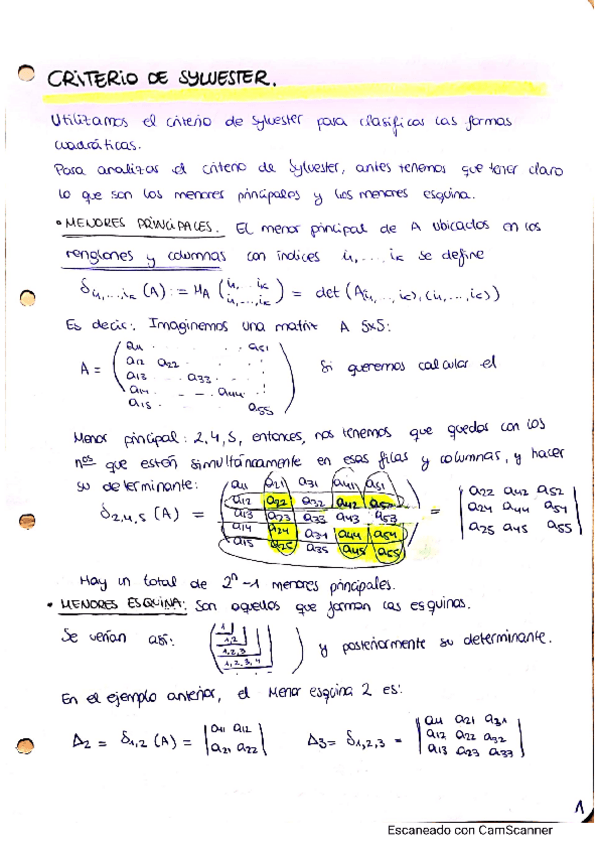 CRITERIO DE SYLVESTER.
Utilizamos el criterio de Sylvester para clasificar las formas
cuadráticas.
Para analizar el criterio de Sylvester, antes tenemos que tener claro
lo que son los menores principales y los menores esquina.
• MENORES PRINCIPALES. El menor principal de A ubicados en los
renglones y columnas con índices i1,...ik se define
δi1,...,ik (A) := MA (i1,...ik / i1,...,ik) = det (A(i1,...,ik),(i1,...,ik))
Es decir: Imaginemos una matriz A 5x5:
A = ( a11 . . . . a51
a12 a22 . . .
a13 . a33 . .
a14 . - - a44 .
a15 . . . a55 ) Si queremos calcular el
Menor principal: 2,4,5, entonces, nos tenemos que quedar con los
nos que están simultáneamente en esas filas y columnas, y hacer
su determinante:
δ2,4,5 (A) = ( a11 a21 a31 a41 a51
a12 a22 a32 a42 a52
a13 a23 a33 a43 a53
a14 a24 a34 a44 a54
a15 a25 a35 a45 a55 ) = | a22 a42 a52
a24 a44 a54
a25 a45 a55 |
Hay un total de 2^n -1 menores principales.
• MENORES ESQUINA: Son aquellos que forman las esquinas.
Se verían así: ( 1
1,2
1,2,3
1,2,3,4 ) y posteriormente su determinante.
En el ejemplo anterior, el Menor esquina 2 es:
Δ2 = δ1,2 (A) = | a11 a12
a21 a22 | Δ3= δ1,2,3 = | a11 a21 a31
a12 a22 a32
a13 a23 a33 |
1
Escaneado con CamScanner